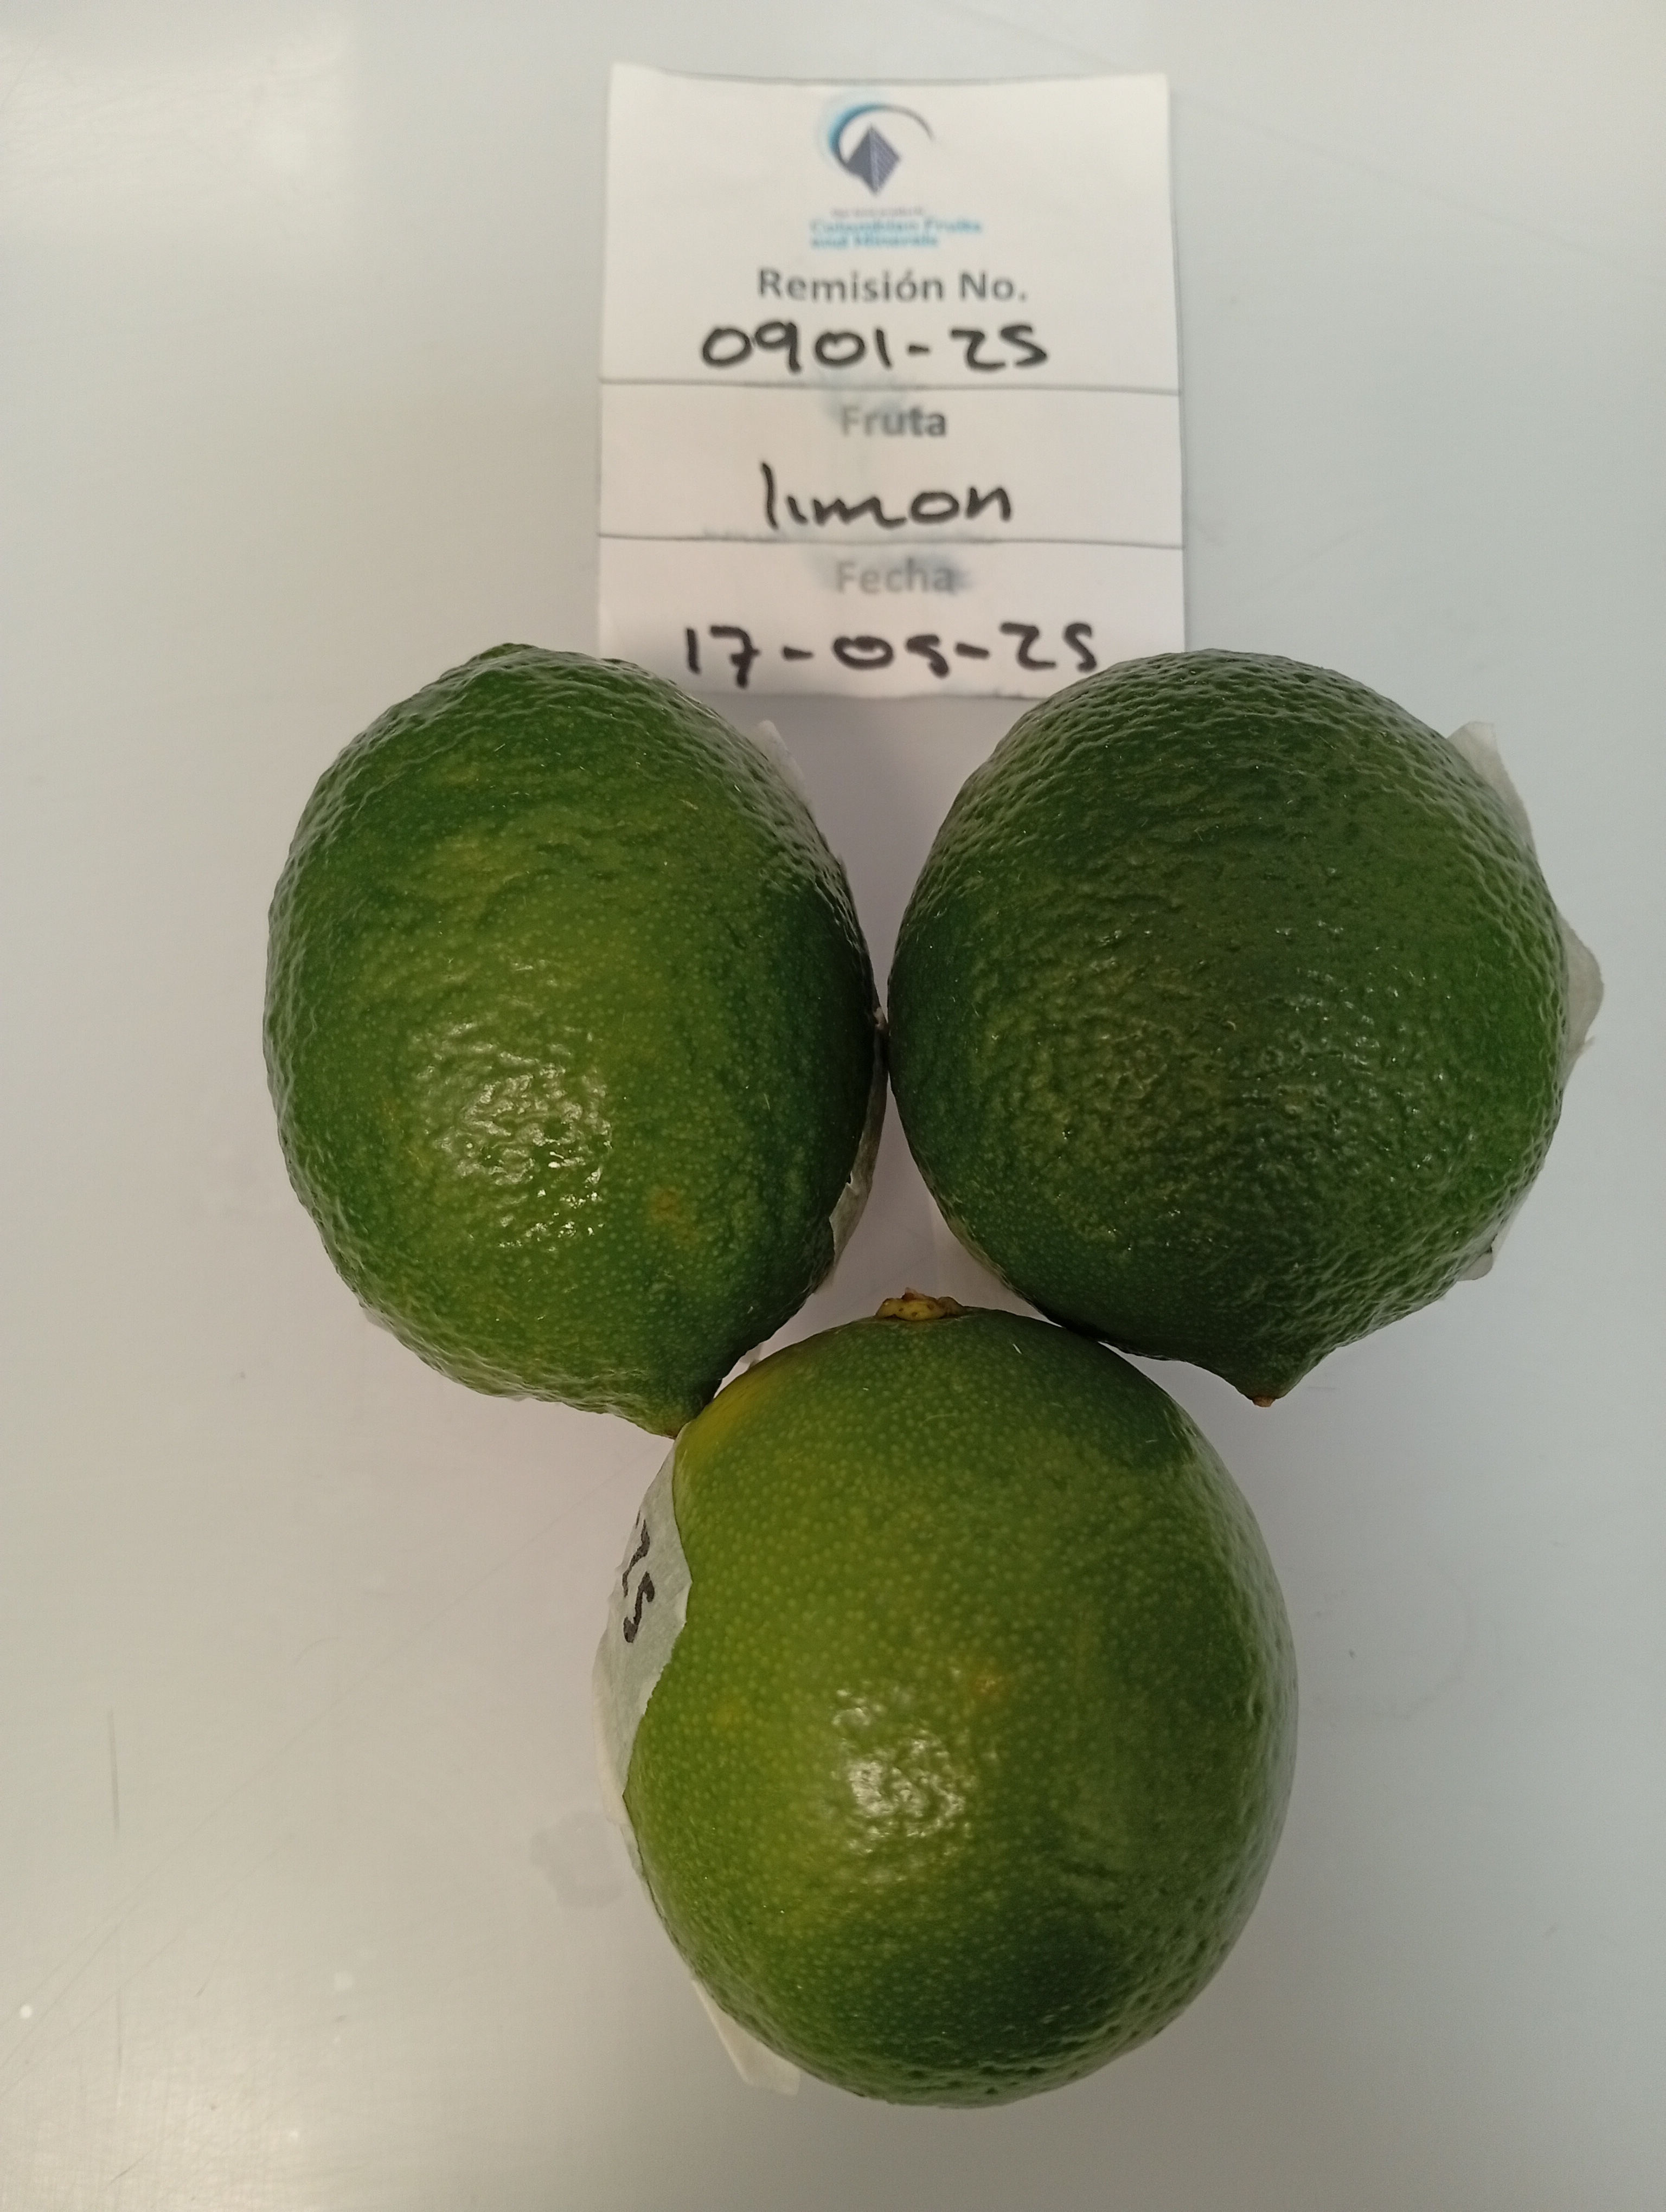 Colombian Fruits
and Minerals
Remisión No.
0901-25
Fruta
limon
Fecha
17-05-25
25